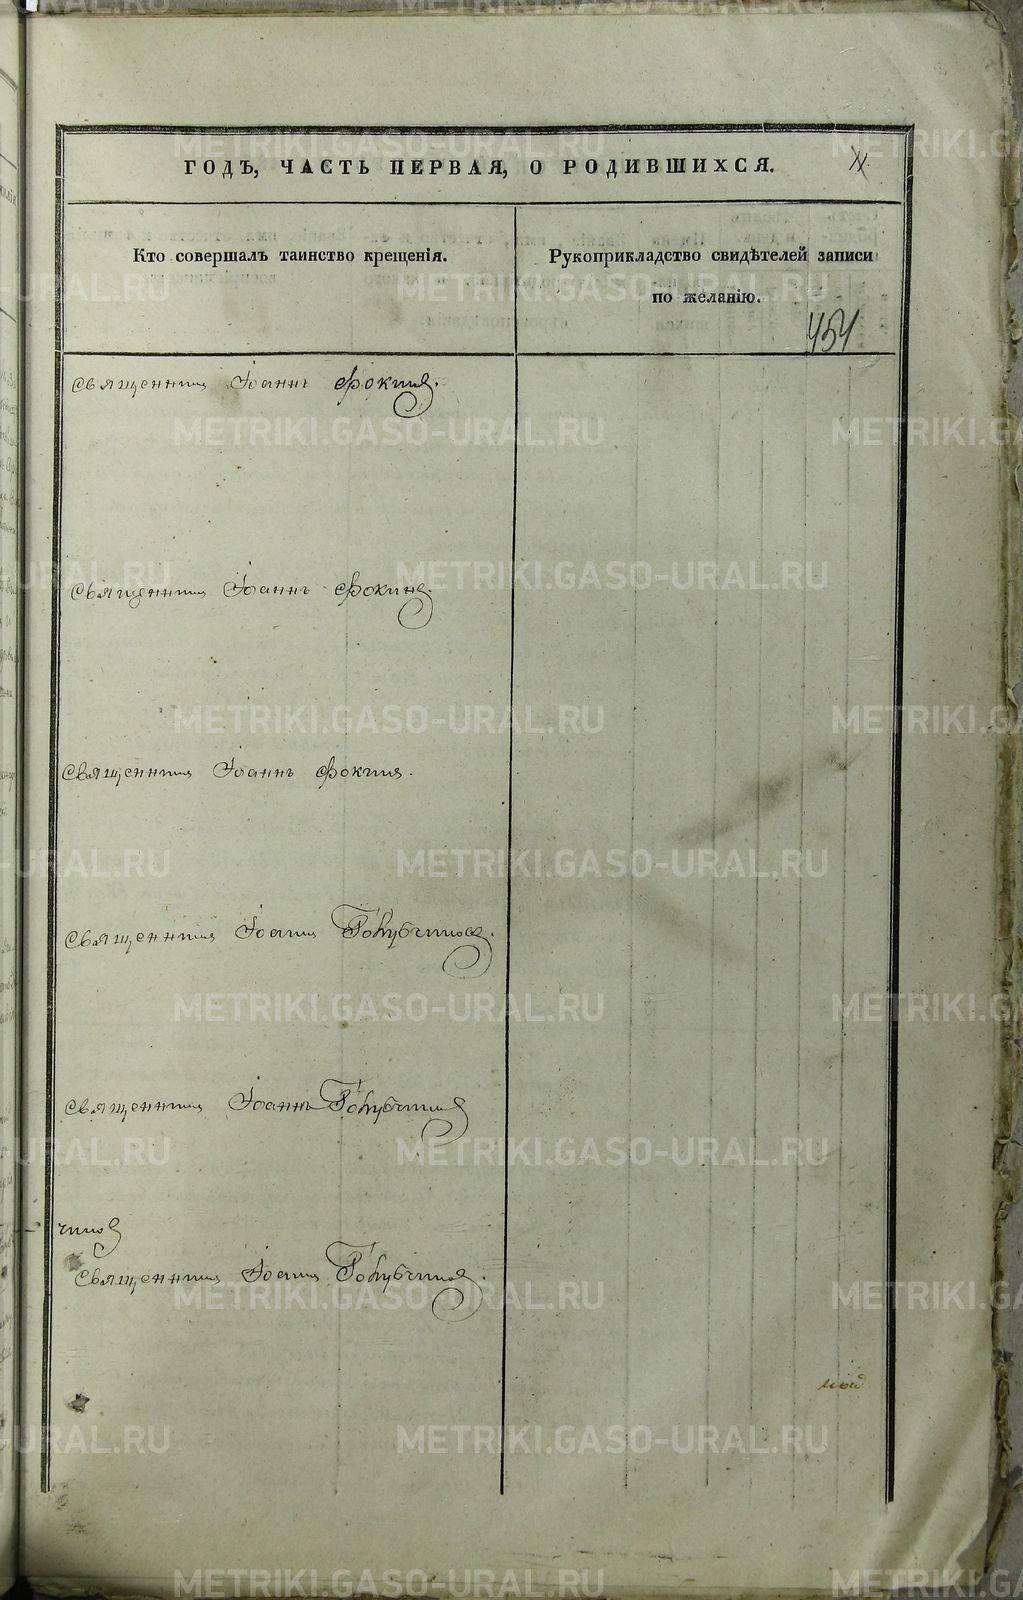 ГОДЪ, ЧАСТЬ ПЕРВАЯ, О РОДИВШИХСЯ.
Кто совершалъ таинство крещенія.
Рукоприкладство свидѣтелей записи
по желанію.
454
Священникъ Іоаннъ Фокинъ.
Священникъ Іоаннъ Фокинъ.
Священникъ Іоаннъ Фокинъ.
Священникъ Іоаннъ Голубчиковъ.
Священникъ Іоаннъ Голубчиковъ
чиковъ
Священникъ Іоаннъ Голубчиковъ.
METRIKI.GASO-URAL.RU